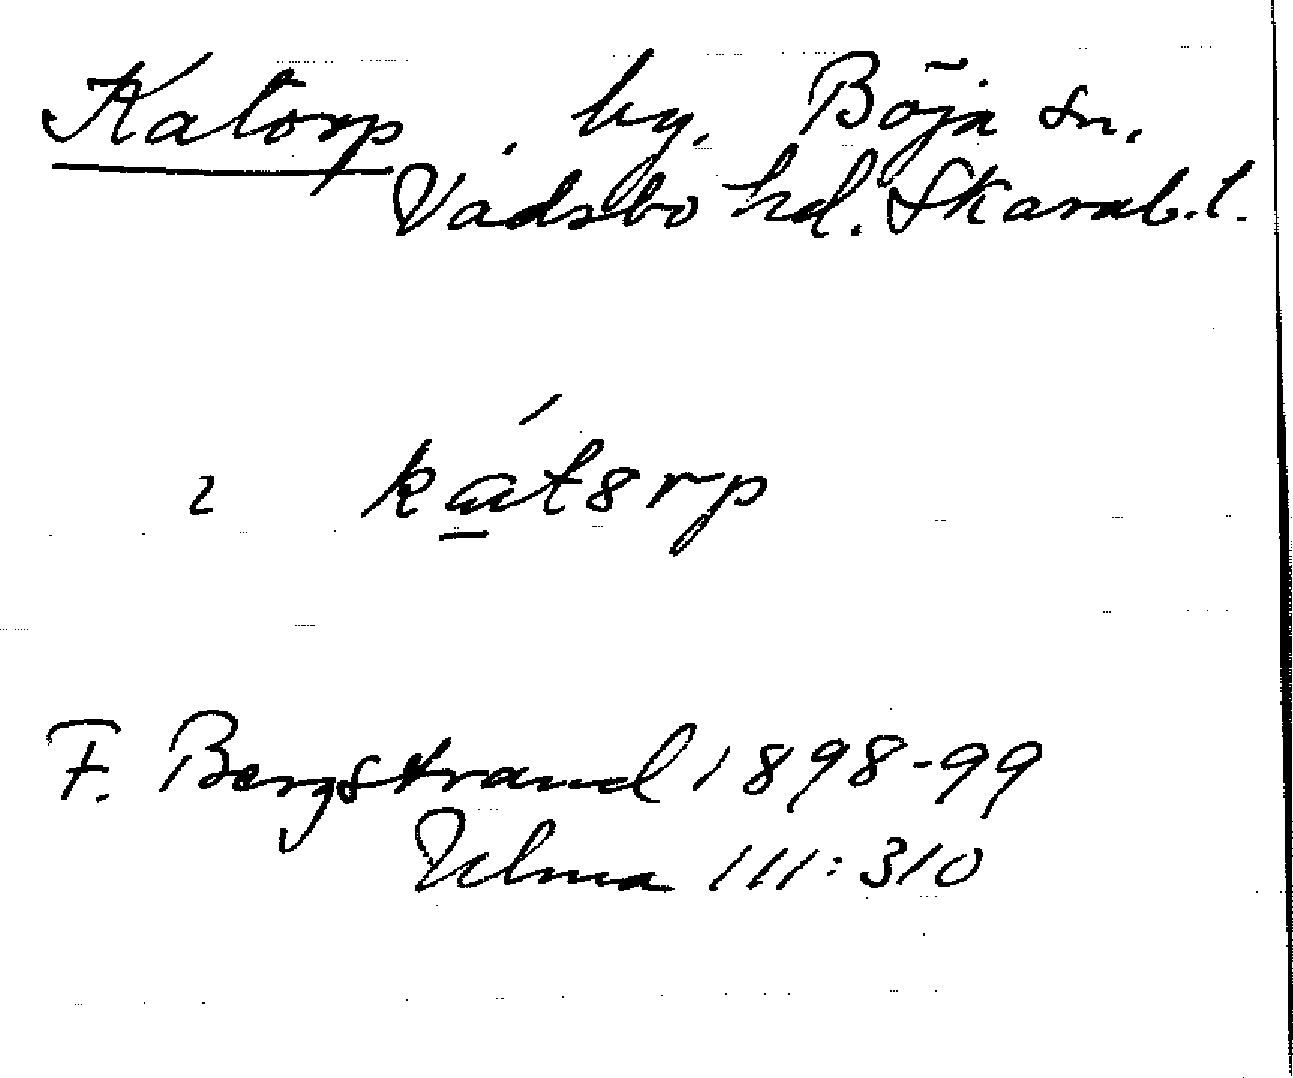 Katorp, by, Böja sn.
Vadsbo hd. Skarab.l.
2 kát8rp
F. Bergstrand 1898-99
Ulma 111:310